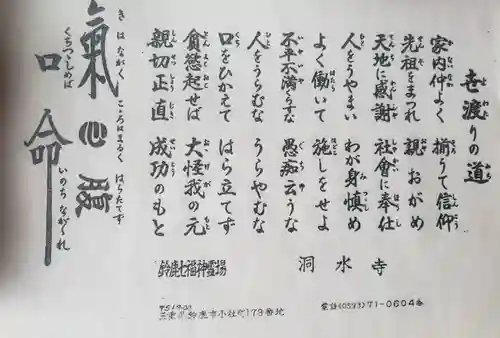 世渡りの道
家内仲よく 揃うて信仰
先祖をまつれ 親おがめ
天地に感謝 社会に奉仕
人をうやまい わが身慎め
よく働いて 施しをせよ
不平不満くらすな 愚痴云うな
人をうらむな うらやむな
口をひかえて はら立てず
貪慾起せば 大怪我の元
親切正直 成功のもと
氣 心 腹
きはながく こころはまるく はらたてず
口 命
くちつつしめば いのちながかれ
洞水寺
鈴鹿七福神霊場
三重県鈴鹿市小社町179番地
電話(0593)71-0604番